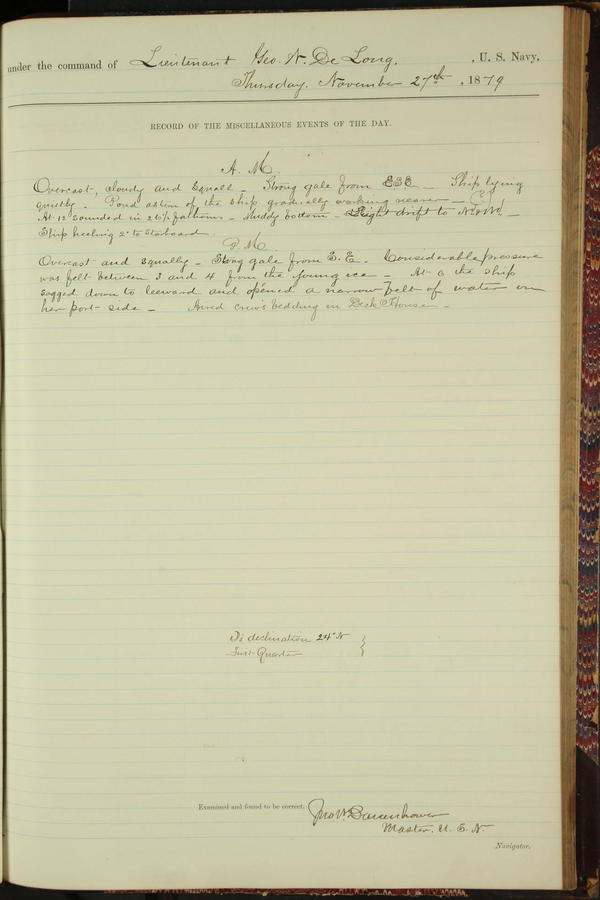 under the command of Lieutenant Geo. W. De Long. , U. S. Navy.
Thursday. November 27th , 1879
RECORD OF THE MISCELLANEOUS EVENTS OF THE DAY.
A. M.
Overcast, cloudy and squall - Strong gale from ESE - Ship lying
quietly - Pond astern of the ship gradually working nearer -
At 12 sounded in 26½ fathoms - Muddy bottom - Slight drift to NWW -
Ship heeling 2° to starboard.
P. M.
Overcast and squally - Strong gale from S. E. - Considerable pressure
was felt between 3 and 4 from the young ice - At 6 the ship
sagged down to leeward and opened a narrow belt of water on
her port side - Aired crew's bedding in Deck House -
declination 24° N }
First Quarter
Examined and found to be correct. Jno W. Danenhower
Master. U. S. N.
Navigator.